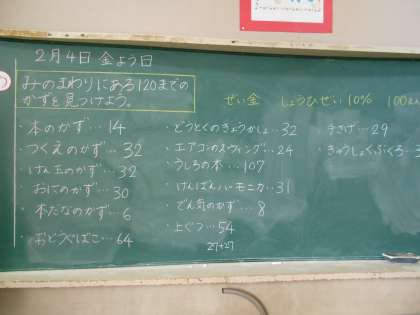 2月4日 金よう日
みのまわりにある120までの
かずを見つけよう。
ぜい金 しょうひぜい 10%
・本のかず…14
・つくえのかず…32
・けん玉のかず…32
・おにのかず…30
・本だなのかず…6
・おどうぐばこ…64
・どうとくのきょうかしょ…32
・エアコンのスウィング…24
・うしろの本…107
・けんばんハーモニカ…31
・でん気のかず…8
・上ぐつ…54
27+27
・手さげ…29
・きゅうしょくぶくろ…